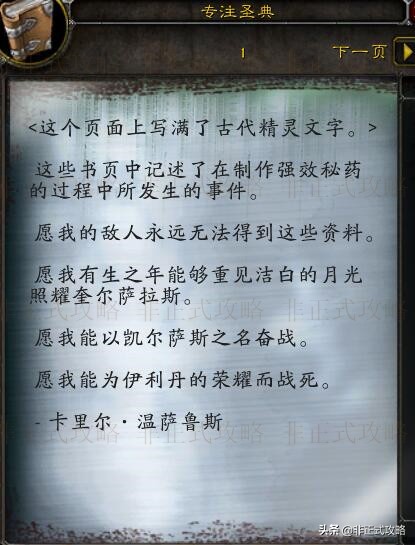 专注圣典
1
下一页
<这个页面上写满了古代精灵文字。>
这些书页中记述了在制作强效秘药
的过程中所发生的事件。
愿我的敌人永远无法得到这些资料。
愿我有生之年能够重见洁白的月光
照耀奎尔萨拉斯。
愿我能以凯尔萨斯之名奋战。
愿我能为伊利丹的荣耀而战死。
- 卡里尔·温萨鲁斯
非正式攻略
非正式攻略
非正式攻略
非正式攻略
头条 @非正式攻略